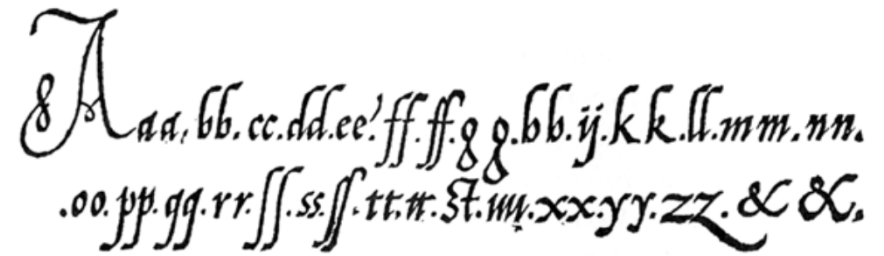 A aa. bb. cc. dd. ee. ff. ff. g g. hh. ij. k k. ll. mm. nn.
.oo. pp. qq. rr. ſſ. ss. ſſ. tt. tt. st. uu. xx. yy. zz. & &.